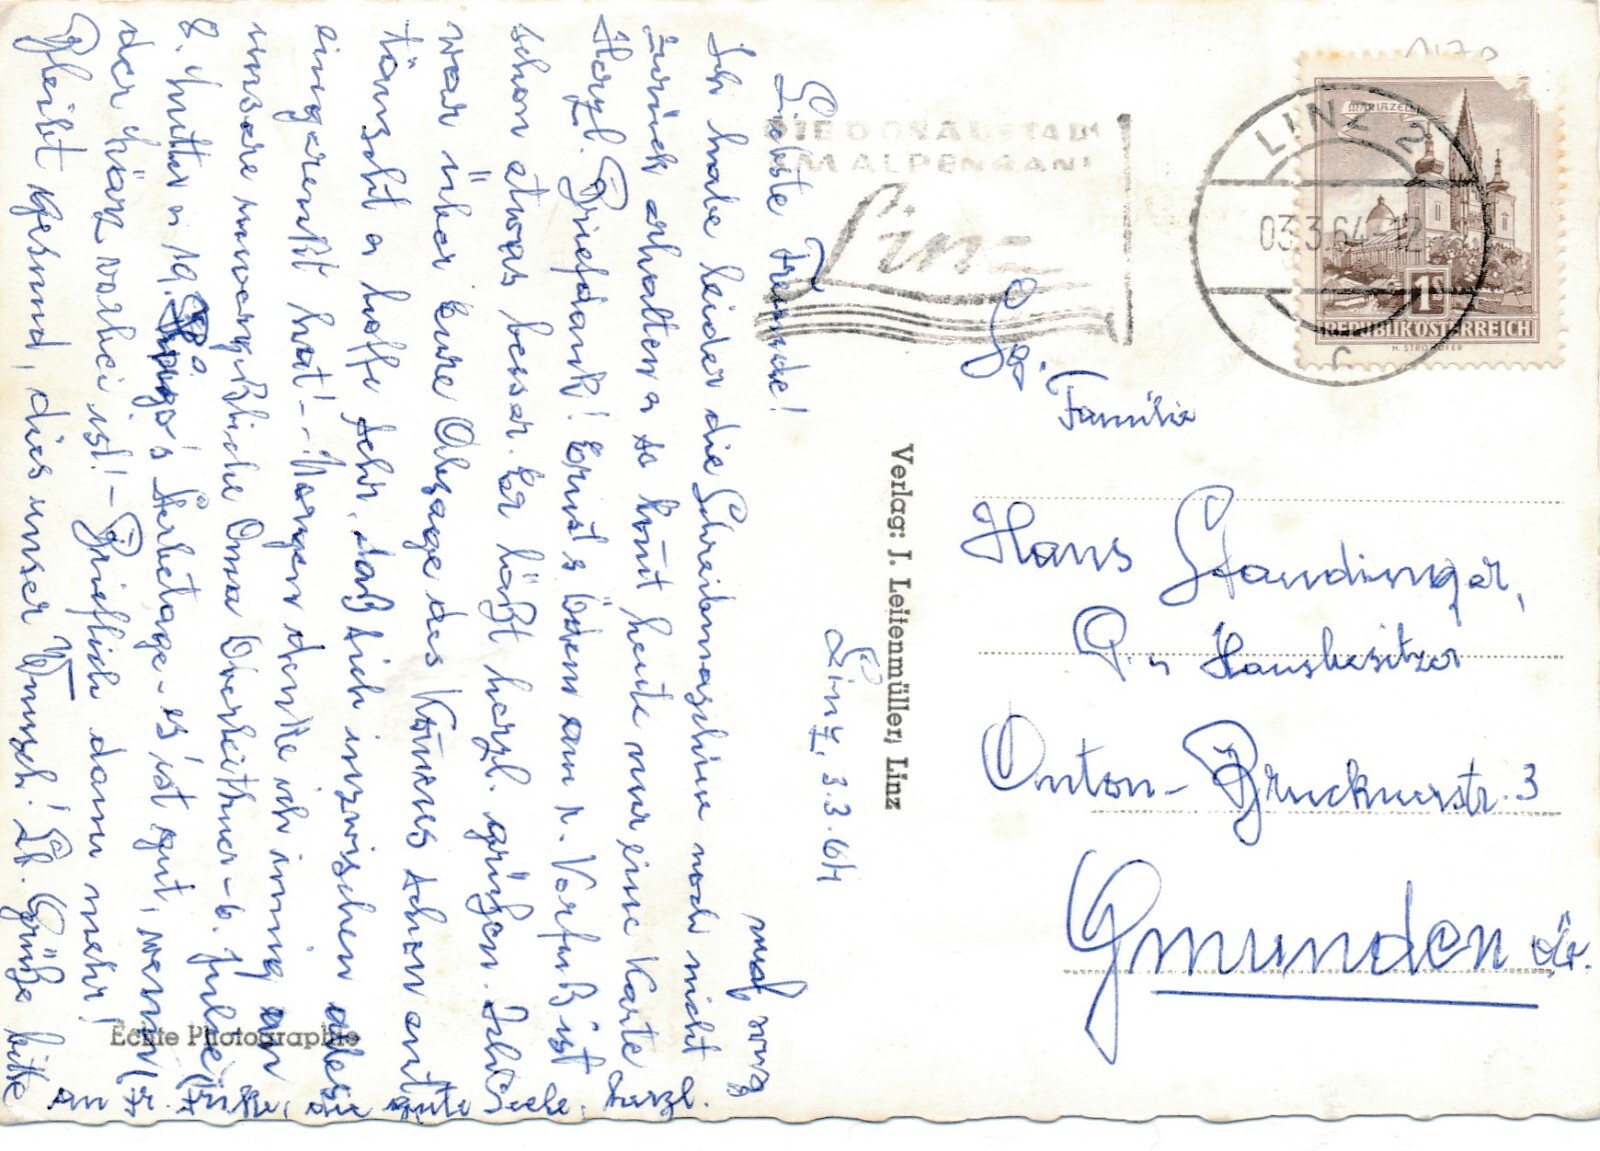 Linz, 3.3.64
Liebste Freunde!
Ich habe leider die Schreibmaschine noch nicht
zurück erhalten u so kōmt heute nur eine Karte
Herzl. Briefdank! Ernst's Ödem am r. Vorfuß ist
schon etwas besser. Er läßt herzl. grüßen. Sehr
war über Eure Absage des Kōmens schon ent-
täuscht u hoffe sehr, daß sich inzwischen alles
eingerenkt hat! - Morgen denke ich innig an
unsere unvergeßliche Oma - 6. Julie,
8. Mutter u 19. Opa's Sterbetage - es ist gut, wenn
der März vorbei ist! - Brieflich dann mehr!
Bleibt gesund, dies unser Wunsch! Lb. Grüße bitte
an Fr. die gute Seele, herzl.
DIE DONAUSTADT
IM ALPENLAND
Linz
LINZ 2
03.3.64-12
c
MARIAZELL
1S
REPUBLIK ÖSTERREICH
H. STROHOFER
Sg.
Familie
Hans Staudinger,
P. u Hausbesitzer
Anton-Brucknerstr. 3
Gmunden
Verlag: J. Leitenmüller, Linz
Echte Photographie